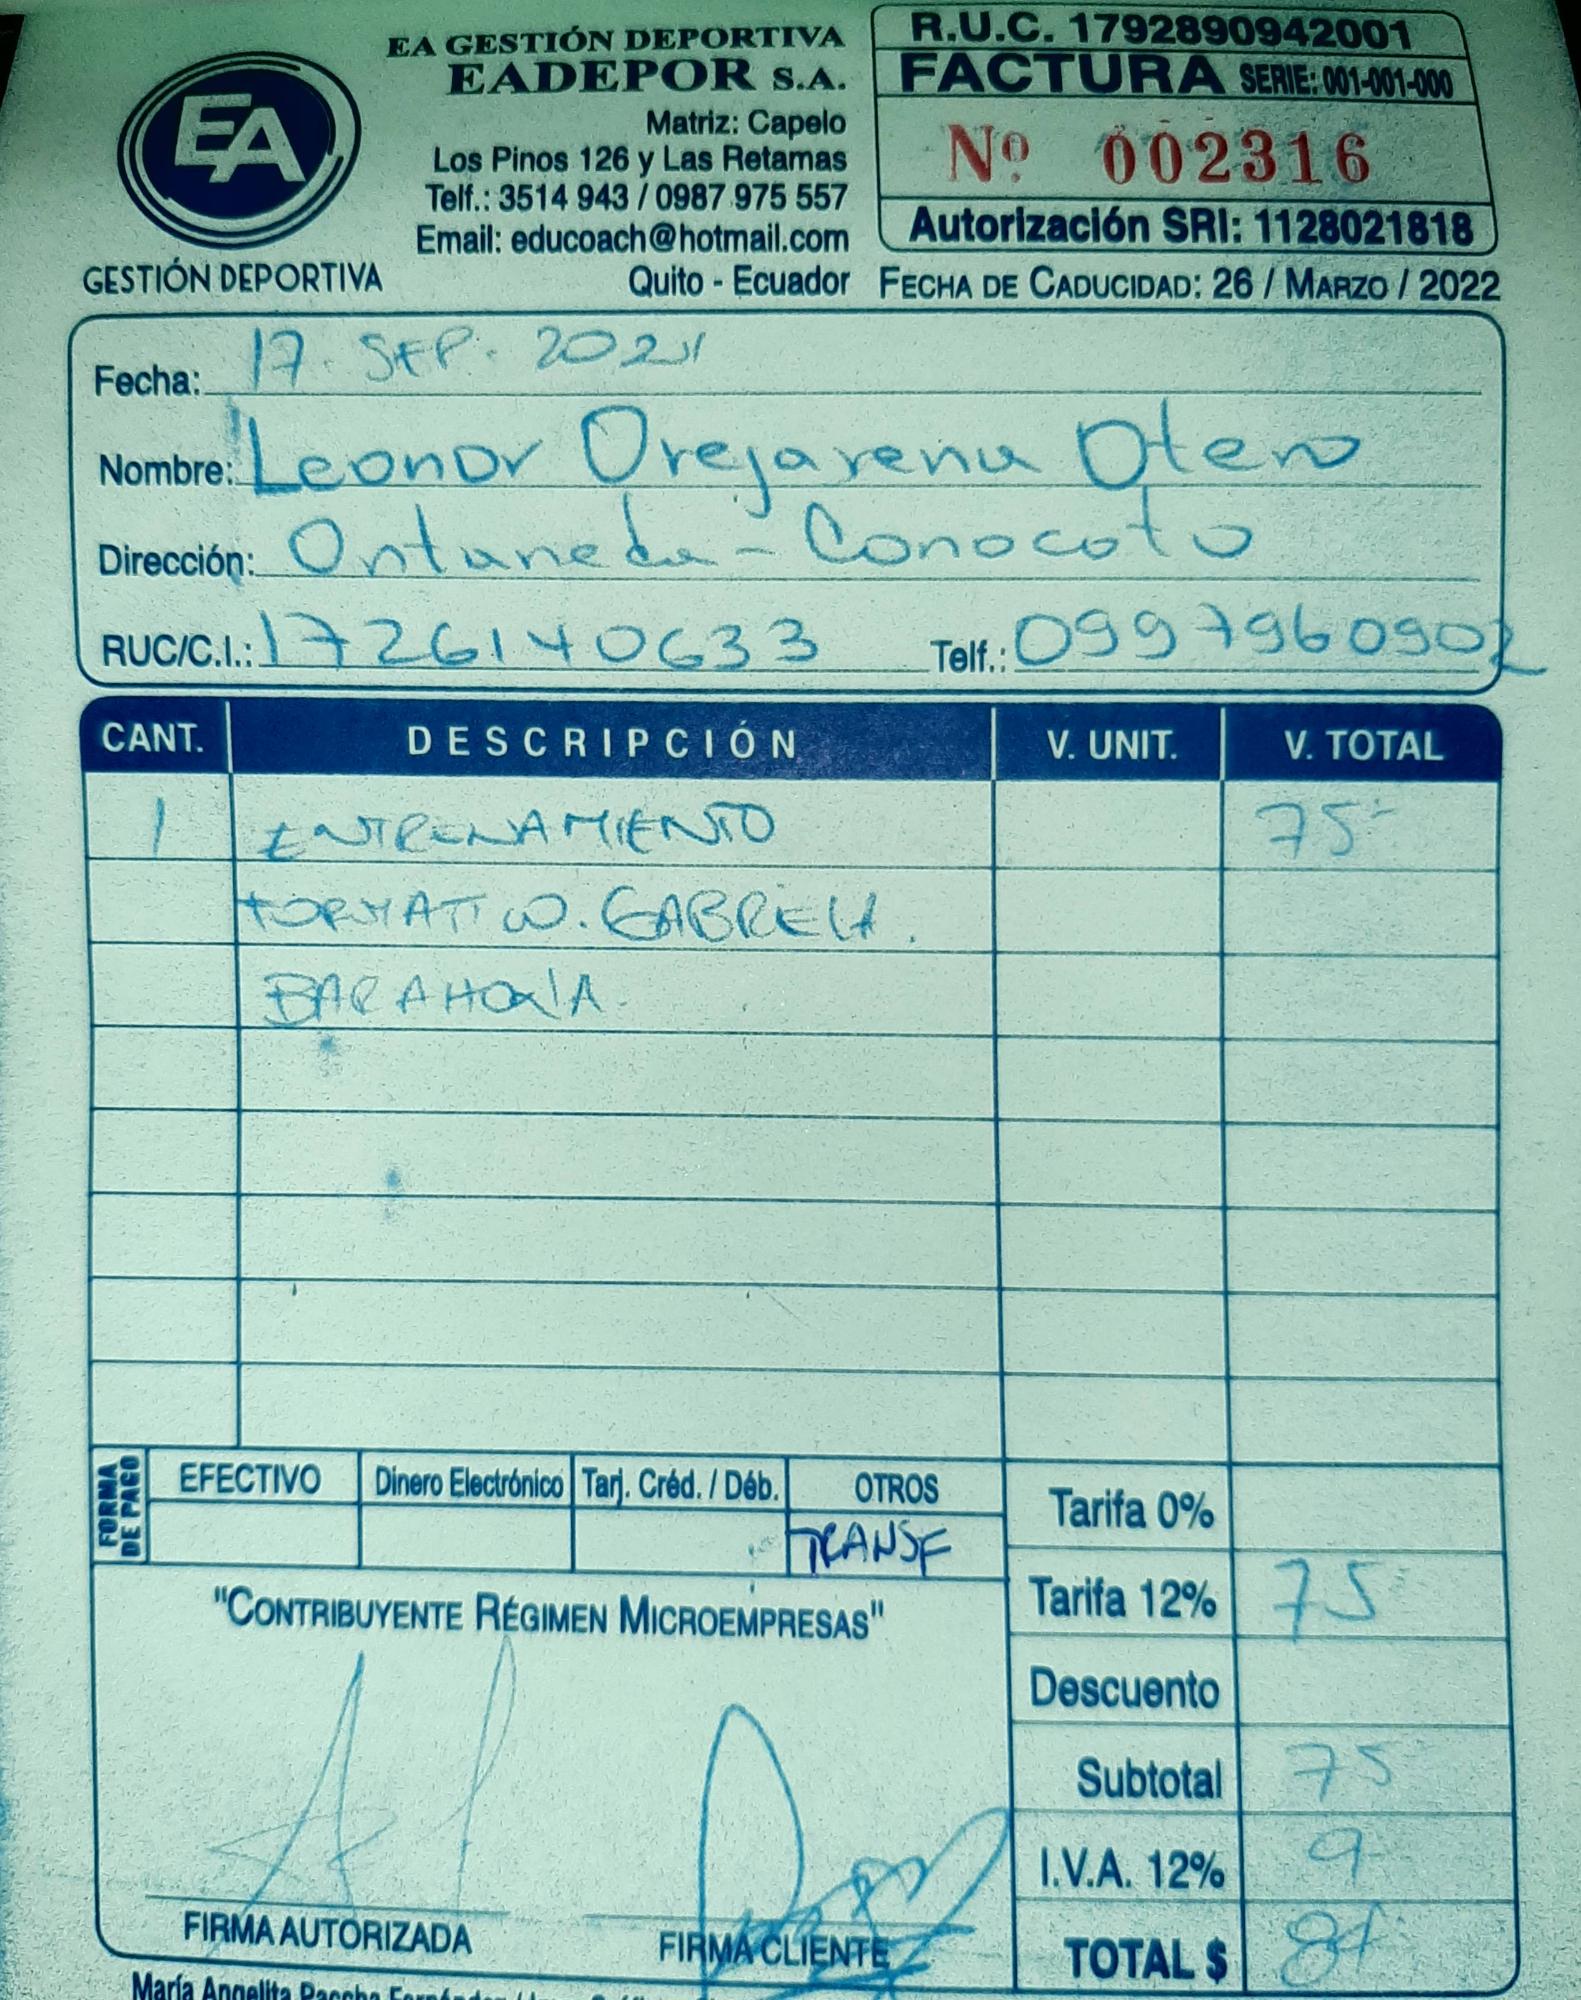 EA
GESTIÓN DEPORTIVA
EA GESTIÓN DEPORTIVA
EADEPOR S.A.
Matriz: Capelo
Los Pinos 126 y Las Retamas
Telf.: 3514 943 / 0987 975 557
Email: educoach@hotmail.com
Quito - Ecuador
R.U.C. 1792890942001
FACTURA SERIE: 001-001-000
Nº 002316
Autorización SRI: 1128021818
FECHA DE CADUCIDAD: 26 / MARZO / 2022
Fecha: 17. SEP. 2021
Nombre: Leonor Orejarena Otero
Dirección: Ontaneda - Conocoto
RUC/C.I.: 1726140633 Telf.: 0997960902
CANT. DESCRIPCIÓN V. UNIT. V. TOTAL
1 ENTRENAMIENTO 75-
FORMATIVO. GABRIELA.
BARAHONA.
FORMA DE PAGO EFECTIVO Dinero Electrónico Tarj. Créd. / Déb. OTROS
TRANSF
Tarifa 0%
Tarifa 12% 75
Descuento
Subtotal 75
I.V.A. 12% 9
TOTAL $ 84
"CONTRIBUYENTE RÉGIMEN MICROEMPRESAS"
FIRMA AUTORIZADA FIRMA CLIENTE
María Angelita Paccha Fernández